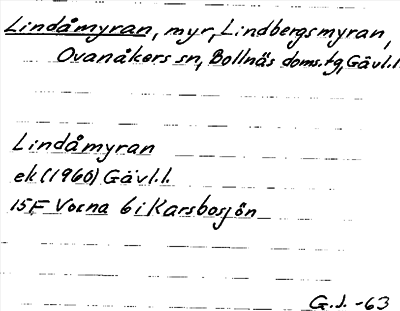 Lindåmyran, myr, Lindbergsmyran,
Ovanåkers sn, Bollnäs doms.tg, Gävl.l.
Lindåmyran
ek (1960) Gävl.l.
15F Voxna 6 i Karsbosjön
G.J. -63